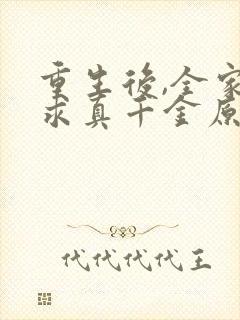 重生後,全家
求真千金原
代代代代王